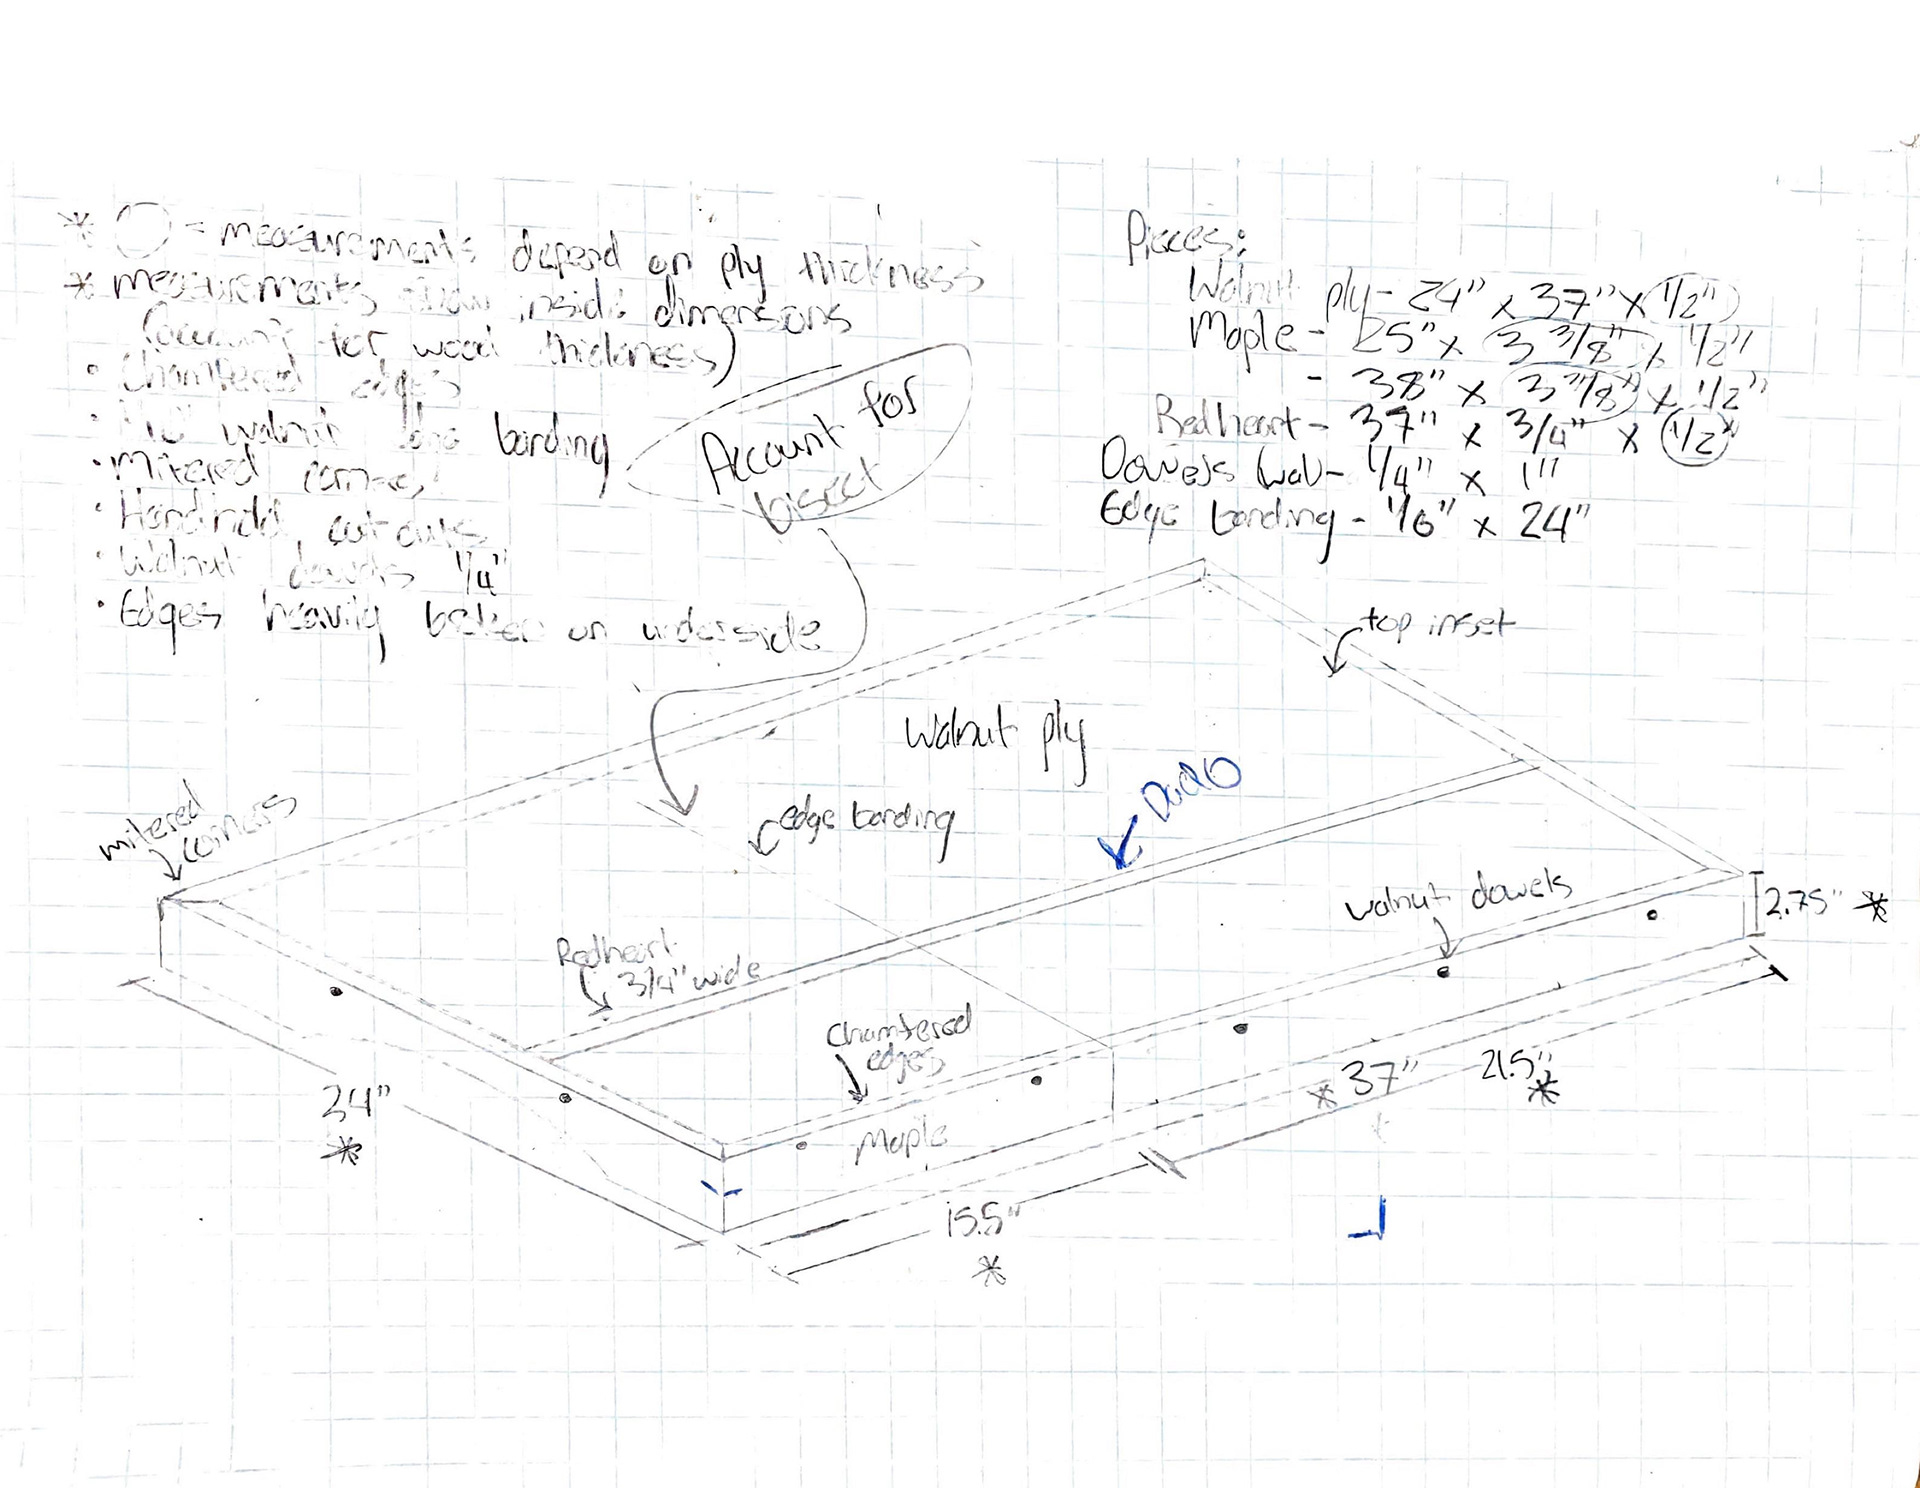 * ◯ = measurements depend on ply thickness
* measurements show inside dimensions
(account for wood thickness)
• Chamfered edges
walnut edge banding
• Mitered corners
• Handhold cutouts
• Walnut dowels 1/4"
• Edges heavily on underside
Account for
bisect
Pieces:
Walnut ply - 24" x 37" x 1/2"
Maple - 25" x 3 3/8" x 1/2"
- 38" x 3 3/8" x 1/2"
Redheart - 37" x 3/4" x 1/2"
Dowels (wal) - 1/4" x 1"
Edge banding - 1/6" x 24"
top inset
Walnut ply
Dado
edge banding
mitered
corners
walnut dowels
2.75" *
Redheart
3/4" wide
Chamfered
edges
Maple
24"
*
* 37"
21.5"
*
15.5"
*